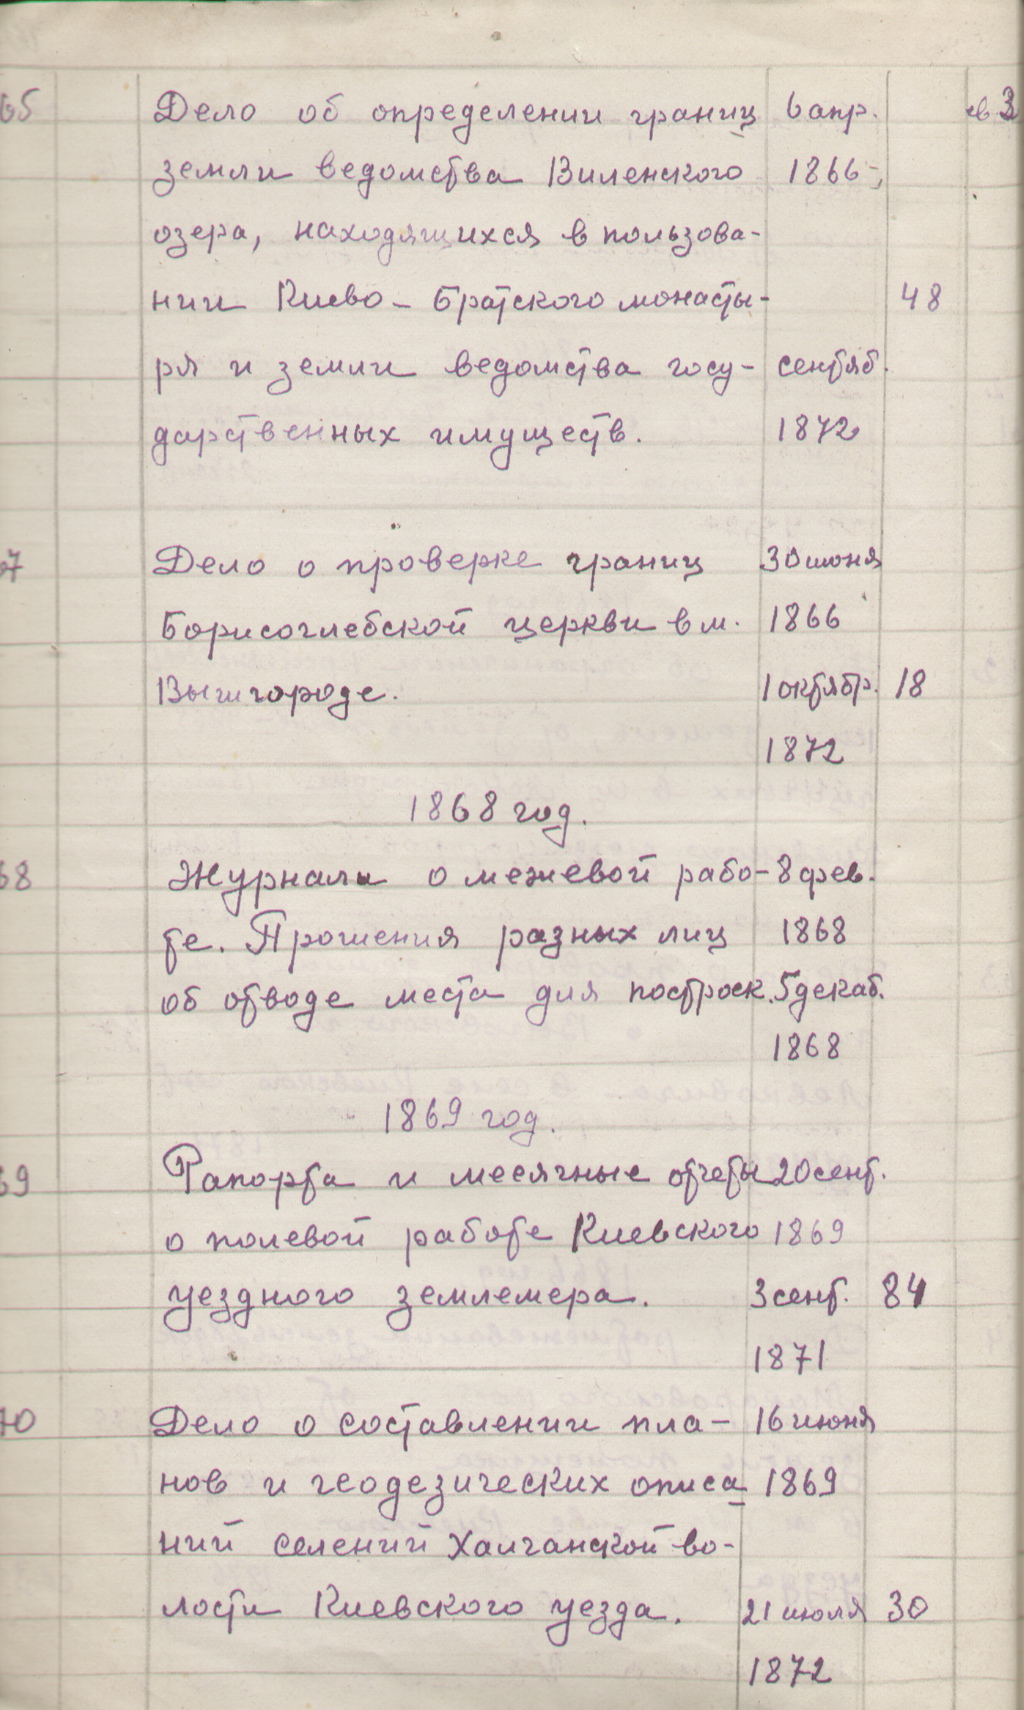 65 Дело об определении границ 6 апр. св 3
земли ведомства Виленского 1866-
озера, находящихся в пользова-
нии Киево-Братского монасты- 48
ря и земли ведомства госу- сентяб.
дарственных имуществ. 1872
67 Дело о проверке границ 30 июня
Борисоглебской церкви в м. 1866
Вышгороде. 1 октябр. 18
1872
1868 год.
68 Журналы о межевой рабо- 8 фев.
те. Прошения разных лиц 1868
об отводе места для построек. 5 декаб.
1868
1869 год.
69 Рапорта и месячные отчеты 20 сент.
о полевой работе Киевского 1869
уездного землемера. 3 сент. 84
1871
70 Дело о составлении пла- 16 июня
нов и геодезических описа 1869
ний селений Халчанской во-
лости Киевского уезда. 21 июля 30
1872